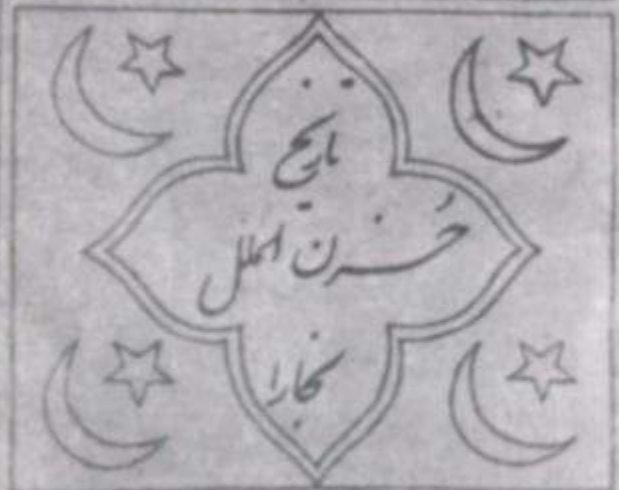 تاریخ
حُزن الملل
بخارا